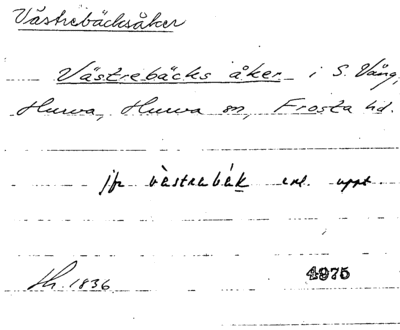 Västrebäcksåker
Västrebäcks åker i S. Vång,
Hurva, Hurva sn, Frosta hd.
jfr västrabäk enl. uppt.
Sk. 1836 4975